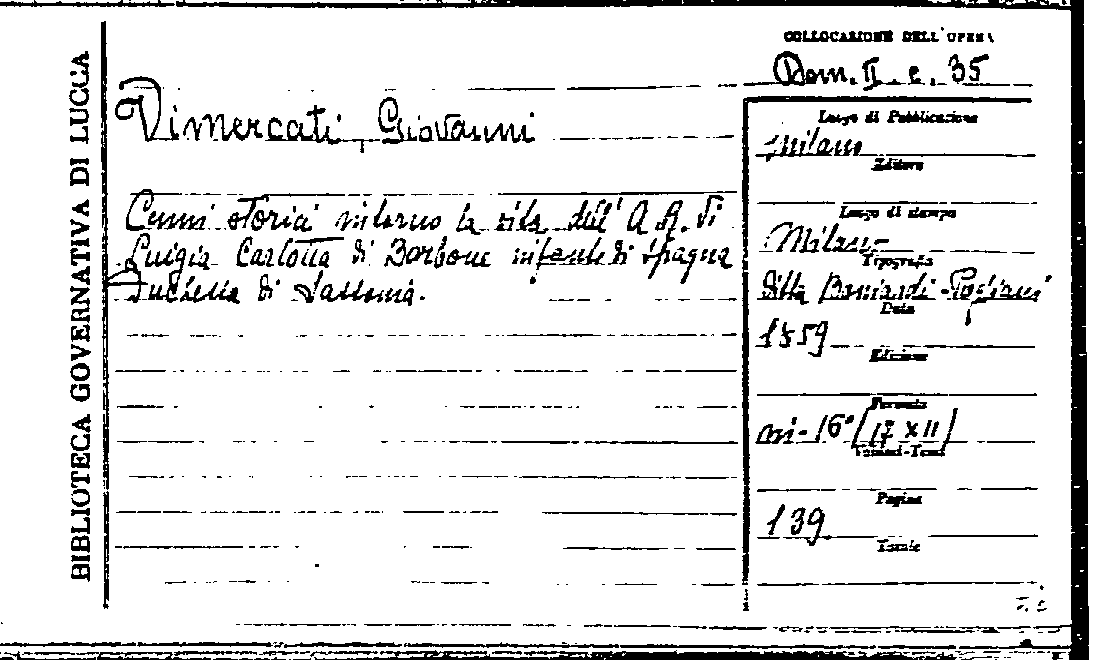 BIBLIOTECA GOVERNATIVA DI LUCCA
COLLOCAZIONE DELL'OPERA
Dom. II. c. 35
Vimercati, Giovanni
Cenni storici intorno la vita dell' A. R. di
Luigia Carlotta di Borbone infante di Spagna
Duchessa di Sassonia.
Luogo di Pubblicazione
Milano
Editore
Luogo di stampa
Milano
Tipografia
Ditta Boniardi-Pogliani
Data
1859
Edizione
Formato
in-16° (17 x 11)
Volumi-Tomi
Pagine
139
Tavole